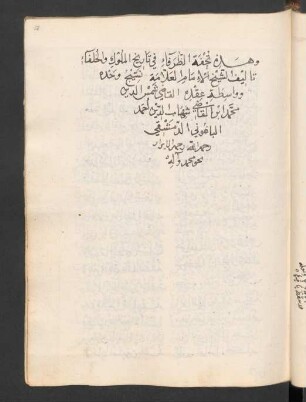 وهذه تحفة الظرفاء في تاريخ الملوك والخلفاء
تاليف الشيخ الامام العلامة نسيج وحده
وواسطة عقده القاضي شمس الدين
محمد ابن القاضي شهاب الدين احمد
الباعوني الدمشقي
رحمه الله
بحق محمد واله